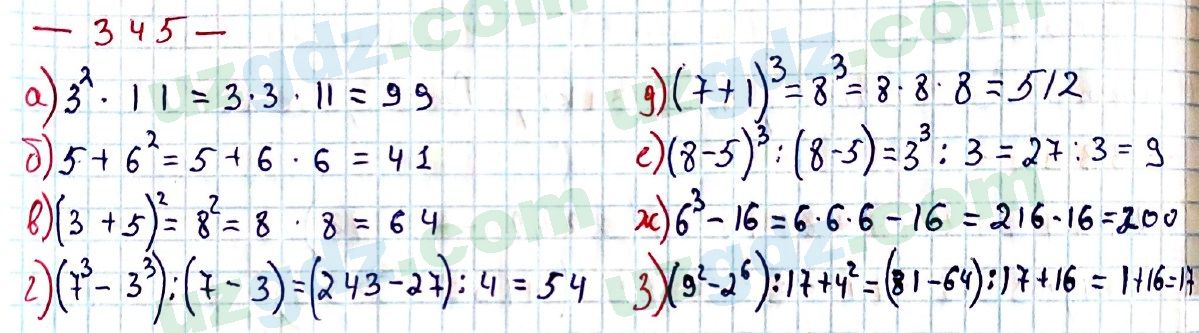 — 345 —
а) 3² · 11 = 3·3·11 = 99
б) 5 + 6² = 5 + 6 · 6 = 41
в) (3 + 5)² = 8² = 8 · 8 = 64
г) (7³ - 3³) : (7 - 3) = (243 - 27) : 4 = 54
д) (7 + 1)³ = 8³ = 8 · 8 · 8 = 512
е) (8 - 5)³ : (8 - 5) = 3³ : 3 = 27 : 3 = 9
ж) 6³ - 16 = 6·6·6 - 16 = 216 - 16 = 200
з) (9² - 2⁶) : 17 + 4² = (81 - 64) : 17 + 16 = 1 + 16 = 17
uzgdz.com